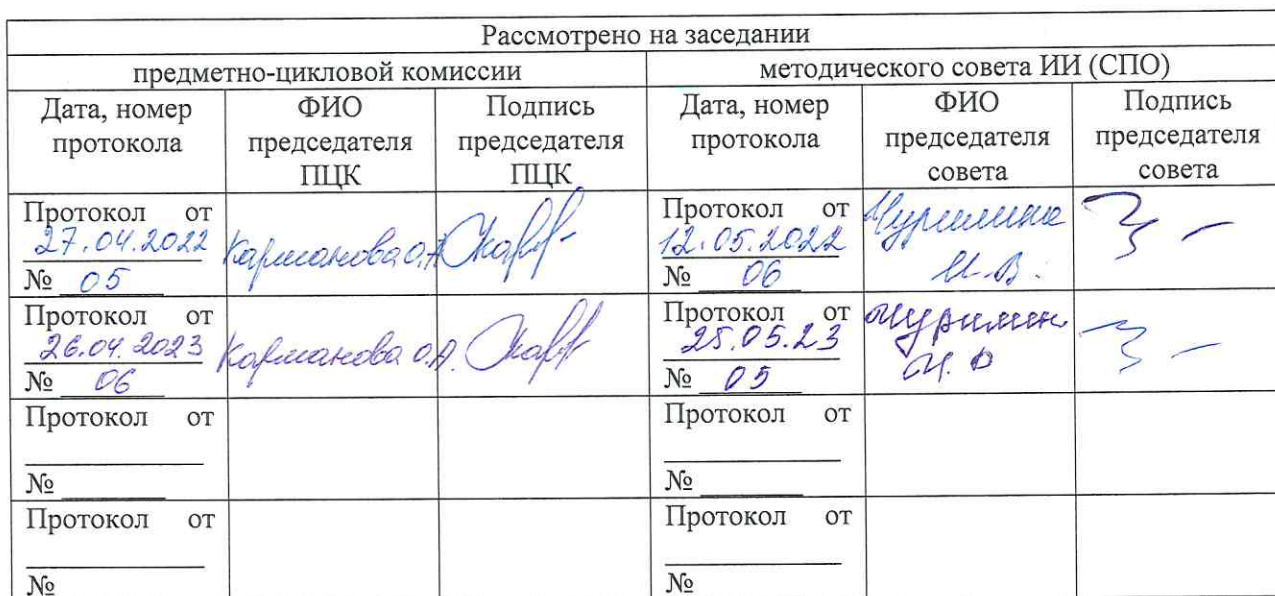 Рассмотрено на заседании
предметно-цикловой комиссии
методического совета ИИ (СПО)
Дата, номер протокола
ФИО председателя ПЦК
Подпись председателя ПЦК
Дата, номер протокола
ФИО председателя совета
Подпись председателя совета
Протокол от
27.04.2022
№ 05
Карманова О.А.
Протокол от
12.05.2022
№ 06
И.В.
Протокол от
26.04.2023
№ 06
Карманова О.А.
Протокол от
25.05.23
№ 05
Протокол от
№
Протокол от
№
Протокол от
№
Протокол от
№